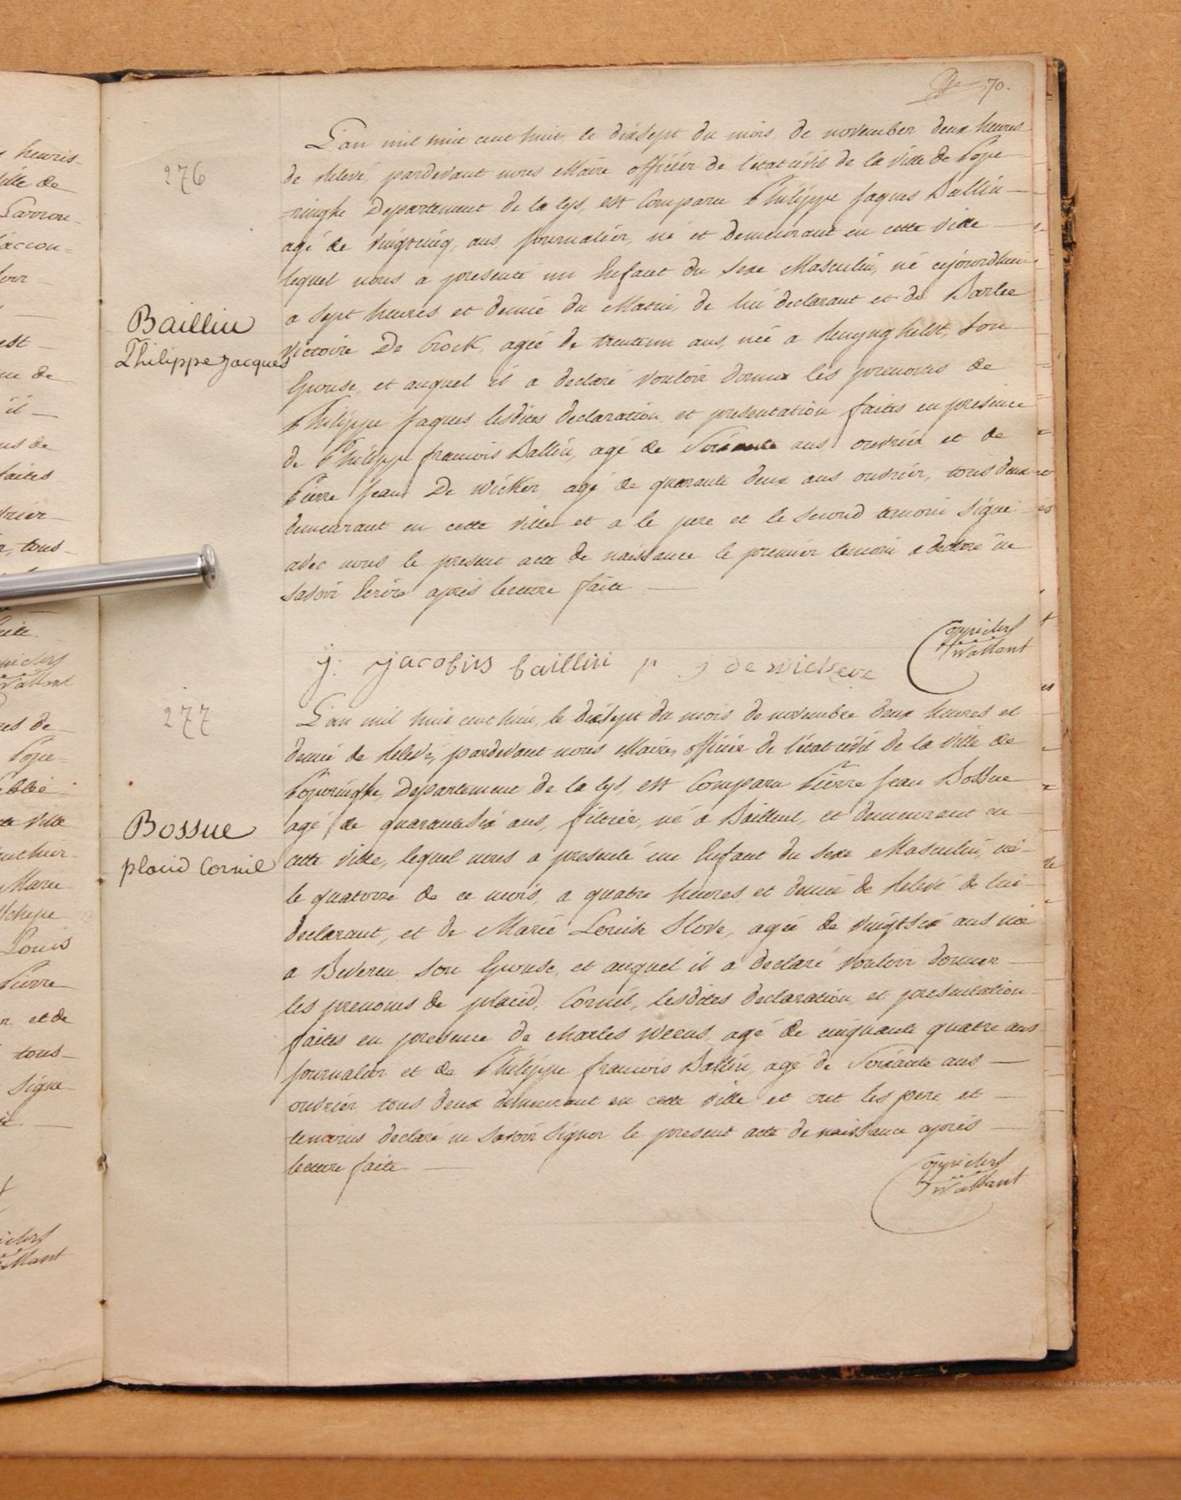 70.
276
L'an mil huit cent huit le dixsept du mois de november deux heures
de relevé, pardevant nous Maire officier de l'état civil de la ville de Pope
ringhe Departement de la Lys, est Comparu Philippe Jaques Baillin
agé de vingtcinq ans, journalier, né et demeurant en cette ville
lequel nous a presenté un Enfant du sexe Masculin, né cejourdhui
a sept heures et demie du Matin, de lui declarant et de Barbe
Victoire De Crock, agée de trenteun ans, née a Reninghelst, son
Baillin
Philippe Jacques
Epouse, et auquel il a declaré vouloir donner les prenoms de
Philippe Jaques lesdites declaration et presentation faites en presence
de Philippe francois Baillin, agé de Soixante ans ouvrier et de
Pierre Jean De Wicker, agé de quarante deux ans ouvrier, tous deux
demeurant en cette ville et a le pere et le second temoin signé
avec nous le present acte de naissance le premier temoin a declaré ne
savoir Ecrire après lecture faite
j. jacobus baillin p j de wickere
277
L'an mil huit cent huit, le dixsept du mois de novembre deux heures et
demie de relevé, pardevant nous Maire, officier de l'état civil de la ville de
Poperinghe, Departement de la Lys, est Comparu Pierre Jean Bossue
agé de quarantesix ans, filtier, né à Bailleul, et demeurant en
Bossue
placid Cornil
cette ville, lequel nous a presenté un Enfant du sexe Masculin, né
le quatorze de ce mois, a quatre heures et demie de relevé de lui
declarant, et de Marie Louise Hove, agée de vingtsix ans née
a Beveren son Epouse, et auquel il a declaré vouloir donner
les prenoms de placid, Cornil, lesdites declaration et presentation
faites en presence de Charles Weens, agé de cinquante quatre ans
journalier et de Philippe francois Baillin, agé de Soixante ans
ouvrier tous deux demeurant en cette ville et ont les pere et
temoins declaré ne savoir signer le present acte de naissance après
lecture faite